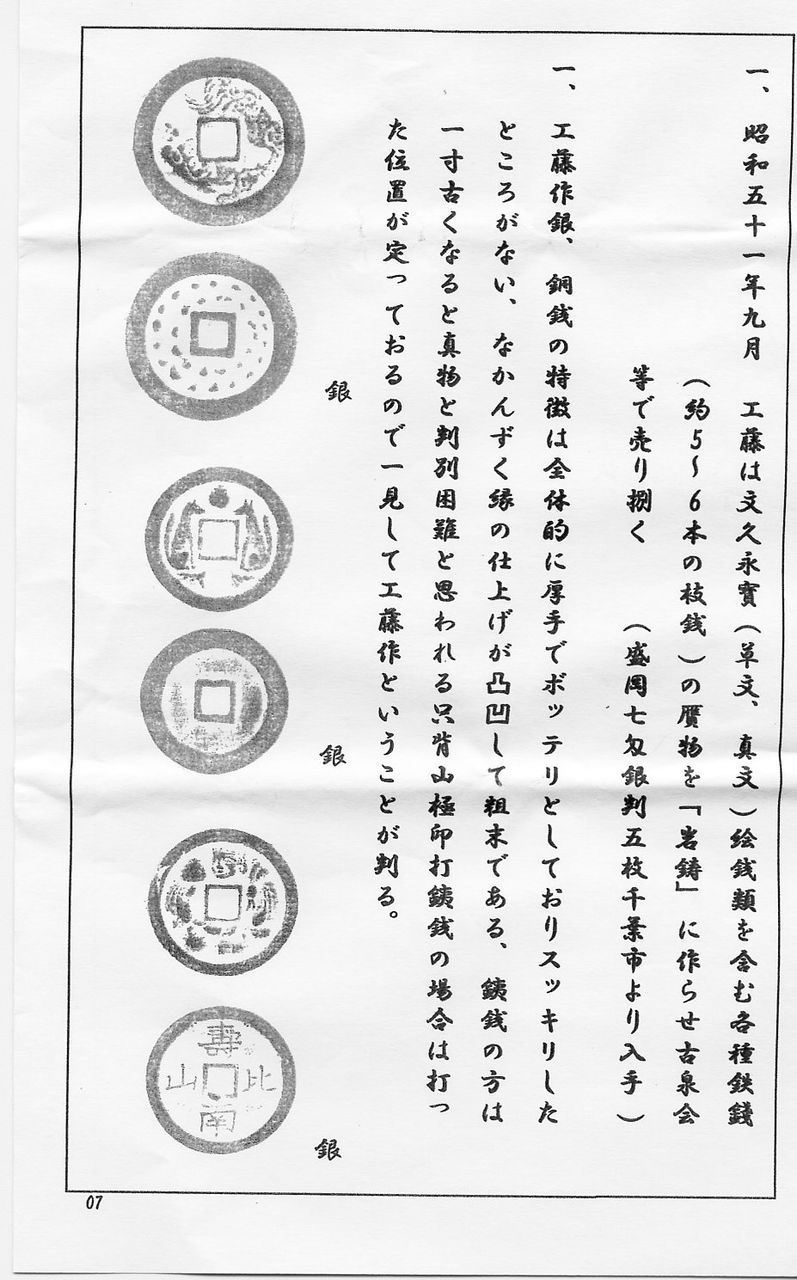 一、昭和五十一年九月　工藤は文久永寳（草文、真文）絵銭類を含む各種鉄銭
（約５～６本の枝銭）の贋物を「岩鋳」に作らせ古泉会
等で売り捌く　（盛岡七匁銀判五枚千葉市より入手）
一、工藤作銀、銅銭の特徴は全体的に厚手でボッテリとしておりスッキリした
ところがない、なかんずく縁の仕上げが凸凹して粗末である、銕銭の方は
一寸古くなると真物と判別困難と思われる只背山極印打銕銭の場合は打っ
た位置が定っておるので一見して工藤作ということが判る。
銀
銀
壽
比
山
南
銀
07